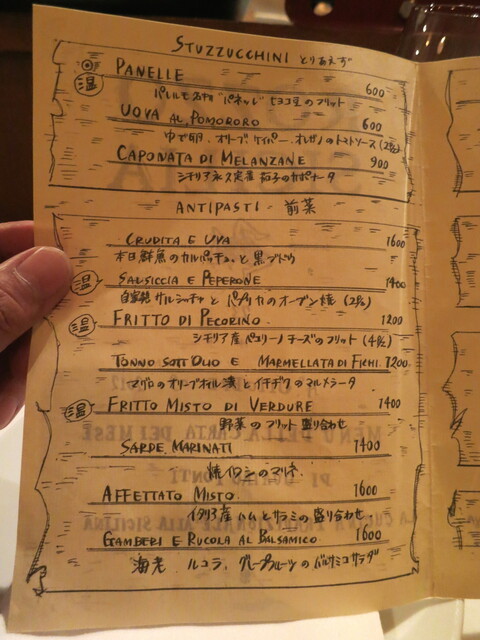 STUZZUCCHINI とりあえず
◎ PANELLE 600
温 パレルモ名物 "パネッレ" ヒヨコ豆のフリット
UOVA AL POMODORO 600
ゆで卵、オリーブ、ケイパー、オレガノのトマトソース (2%)
CAPONATA DI MELANZANE 900
シチリア永久定番 茄子のカポナータ
ANTIPASTI 前菜
CRUDITA E UVA 1600
本日鮮魚のカルパッチョと黒ブドウ
温 SALSICCIA E PEPERONE 1400
自家製サルシッチャとパプリカのオーブン焼
温 FRITTO DI PECORINO 1200
シチリア産ペコリーノチーズのフリット
TONNO SOTT'OLIO E MARMELLATA DI FICHI 1200
マグロのオリーブオイル漬とイチヂクのマルメラータ
温 FRITTO MISTO DI VERDURE 1400
野菜のフリット盛り合わせ
SARDE MARINATI 1400
焼イワシのマリネ
AFFETTATO MISTO 1600
イタリア産ハムとサラミの盛り合わせ
GAMBERI E RUCOLA AL BALSAMICO 1600
海老、ルコラ、グレープフルーツのバルサミコサラダ